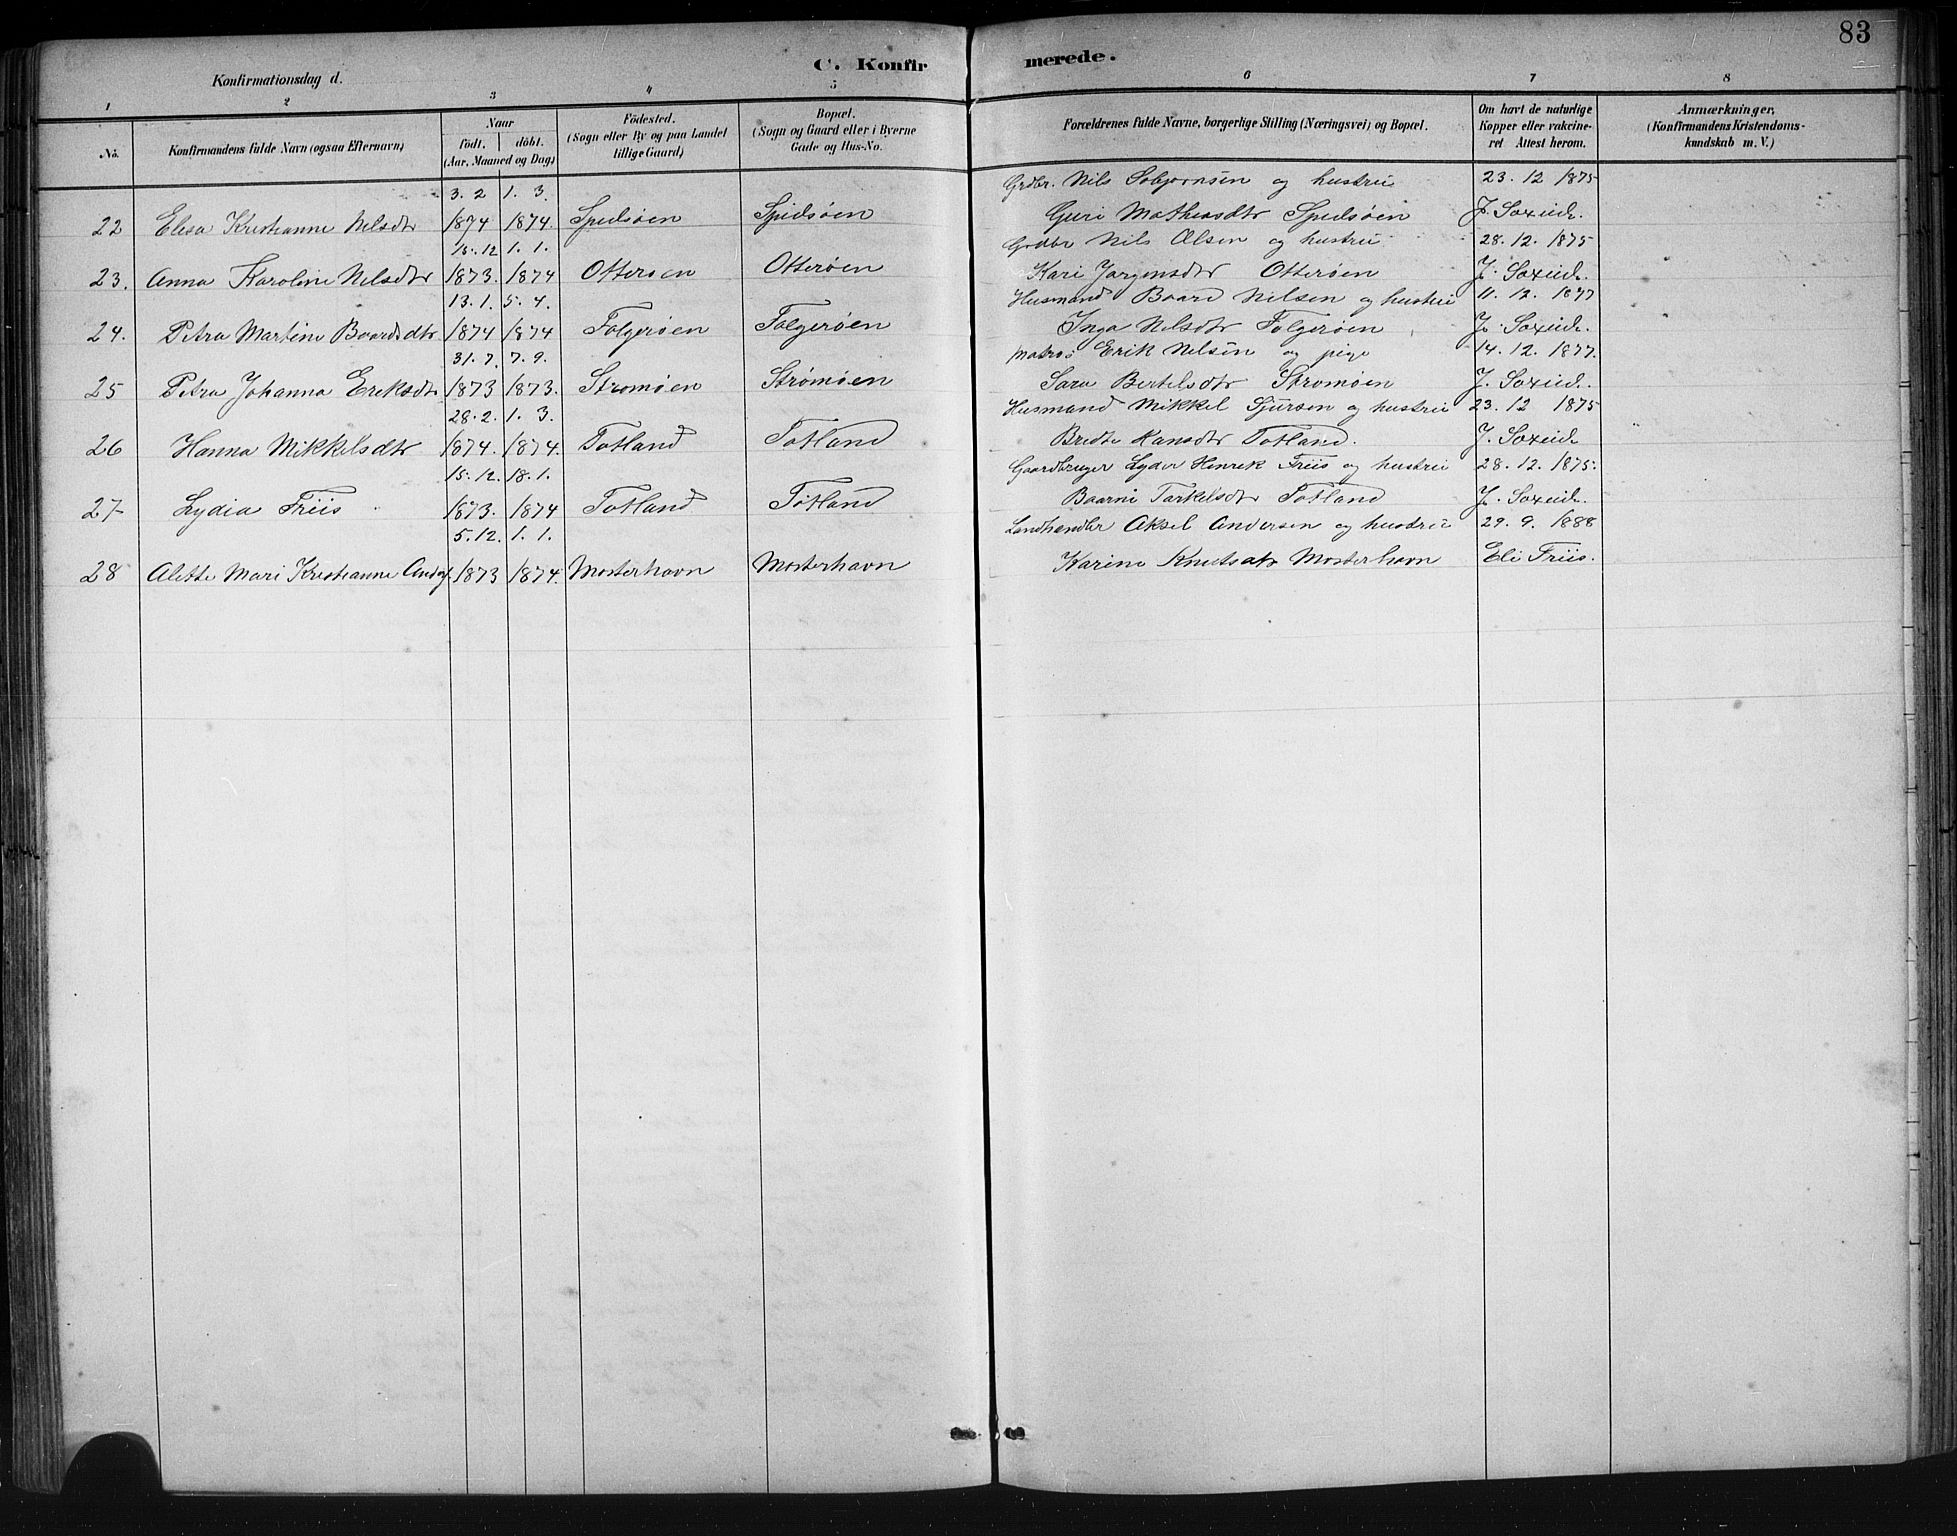 83
C. Konfirmerede.
Konfirmationsdag d.
1 2 3 4 5 6 7 8
No. Konfirmandens fulde Navn (ogsaa Efternavn) Naar födt. döbt. (Aar, Maaned og Dag) Födested. (Sogn eller By og paa Landet tillige Gaard) Bopæl. (Sogn og Gaard eller i Byerne Gade og Hus-No. Forældrenes fulde Navne, borgerlige Stilling (Næringsvei) og Bopæl. Om havt de naturlige Kopper eller vakcineret Attest herom. Anmærkninger, (Konfirmandens Kristendomskundskab m. V.)
3. 2 1. 3. Grdbr. Nils Sobjornsen og hustru 23. 12 1875
22 Elesa Kristianne Nelsdtr 1874 1874. Spidsøen Spidsøen Guri Mathiasdtr Spidsøen J. Soxeid.
15. 12 1. 1. Grdbr Nils Olsen og hustru 28. 12. 1875
23. Anna Karoline Nelsdtr 1873. 1874 Otterøen Otterøen Kari Jorgensdtr Otterøen J. Soxeid.
13. 1. 5. 4. Husmand Baard Nilsen og hustru 11. 12. 1877
24. Petra Martine Baardsdtr 1874 1874 Folgerøen Folgerøen Inga Nelsdtr Folgerøen J. Soxeid.
31. 7 7. 9. Matros Erik Nelsen og pige 14. 12. 1877.
25 Petra Johanna Eriksdtr 1873 1873. Stromøen Strømøen Sara Bertelsdtr Stromøen J. Soxeid.
28. 2. 1. 3. Husmand Mikkel Sjursen og hustru 23. 12 1875
26 Hanna Mikkelsdtr 1874. 1874. Totland Totland Bredte Hansdtr Totland. J. Soxeid
15. 12. 18. 1. Gaardbruger Lyder Henrek Friis og hustru 28. 12. 1875.
27 Lydia Friis 1873. 1874 Totland Totland Baarni Tarkelsdtr Totland J. Soxeid.
5. 12. 1. 1. Landhandler Aksel Andersen og hustru 29. 9. 1888
28 Alette Mari Kristianne 1873 1874. Mosterhavn Mosterhavn Karine Knutsdtr Mosterhavn Eli Friis.